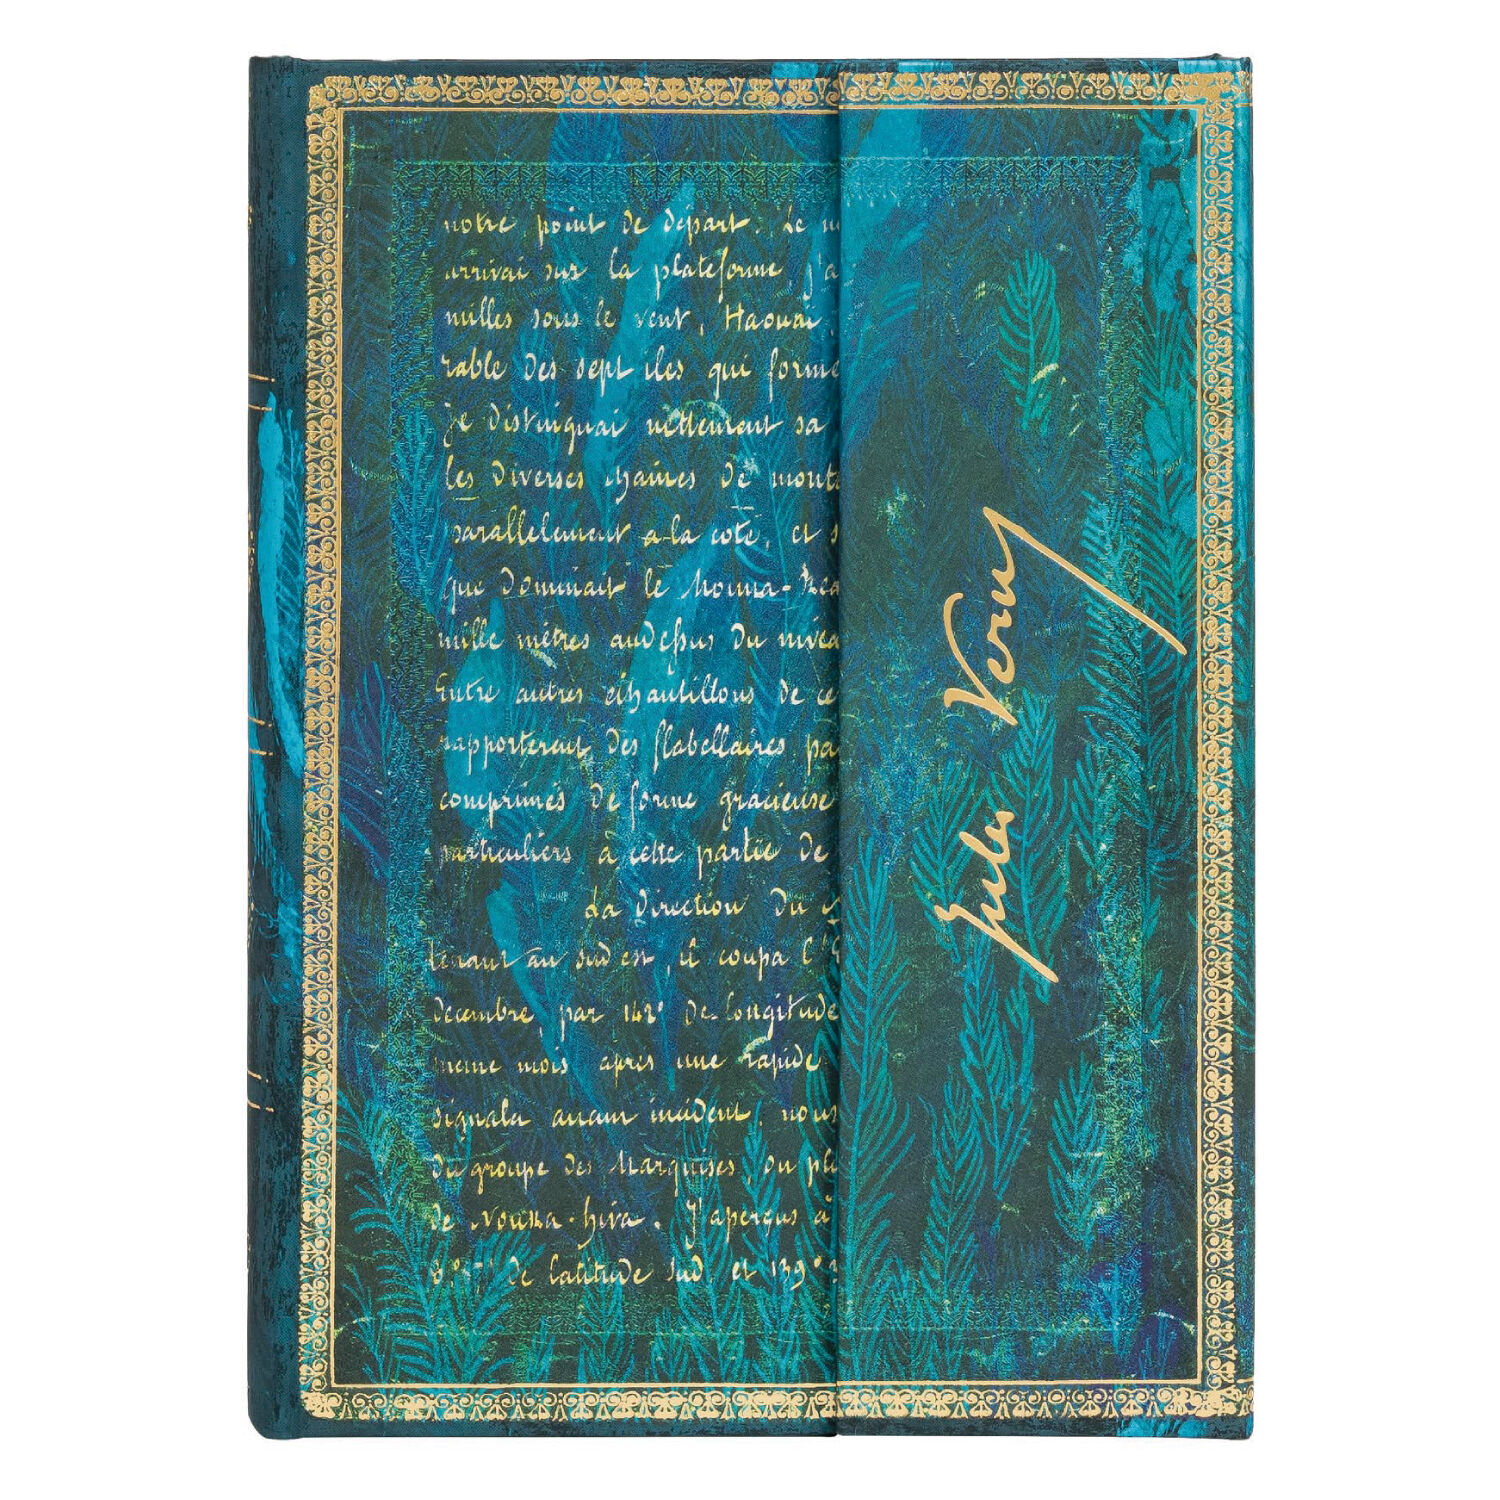 notre point de départ. Le
arrivai sur la plateforme j'a
milles sous le vent, Haouai,
rable des sept iles qui forme
je distinguai nettement sa
les diverses chaines de mont
parallelement a la cote, et s
que dominait le Mouna-Rea
mille mètres audessus du nivea
Entre autres echantillons de ce
rapporterent des flabellaires pa
comprimés de forme gracieuse
particuliers à cette partie de
La direction du
tenant au sud est, il coupa l'
decembre, par 142° de longitude
meme mois apres une rapide
signala aucun incident, nous
du groupe des Marquises, ou pl
de Nouka-hiva. J'aperçus à
8° 57' de latitude sud, et 139° 3
Jules Verne